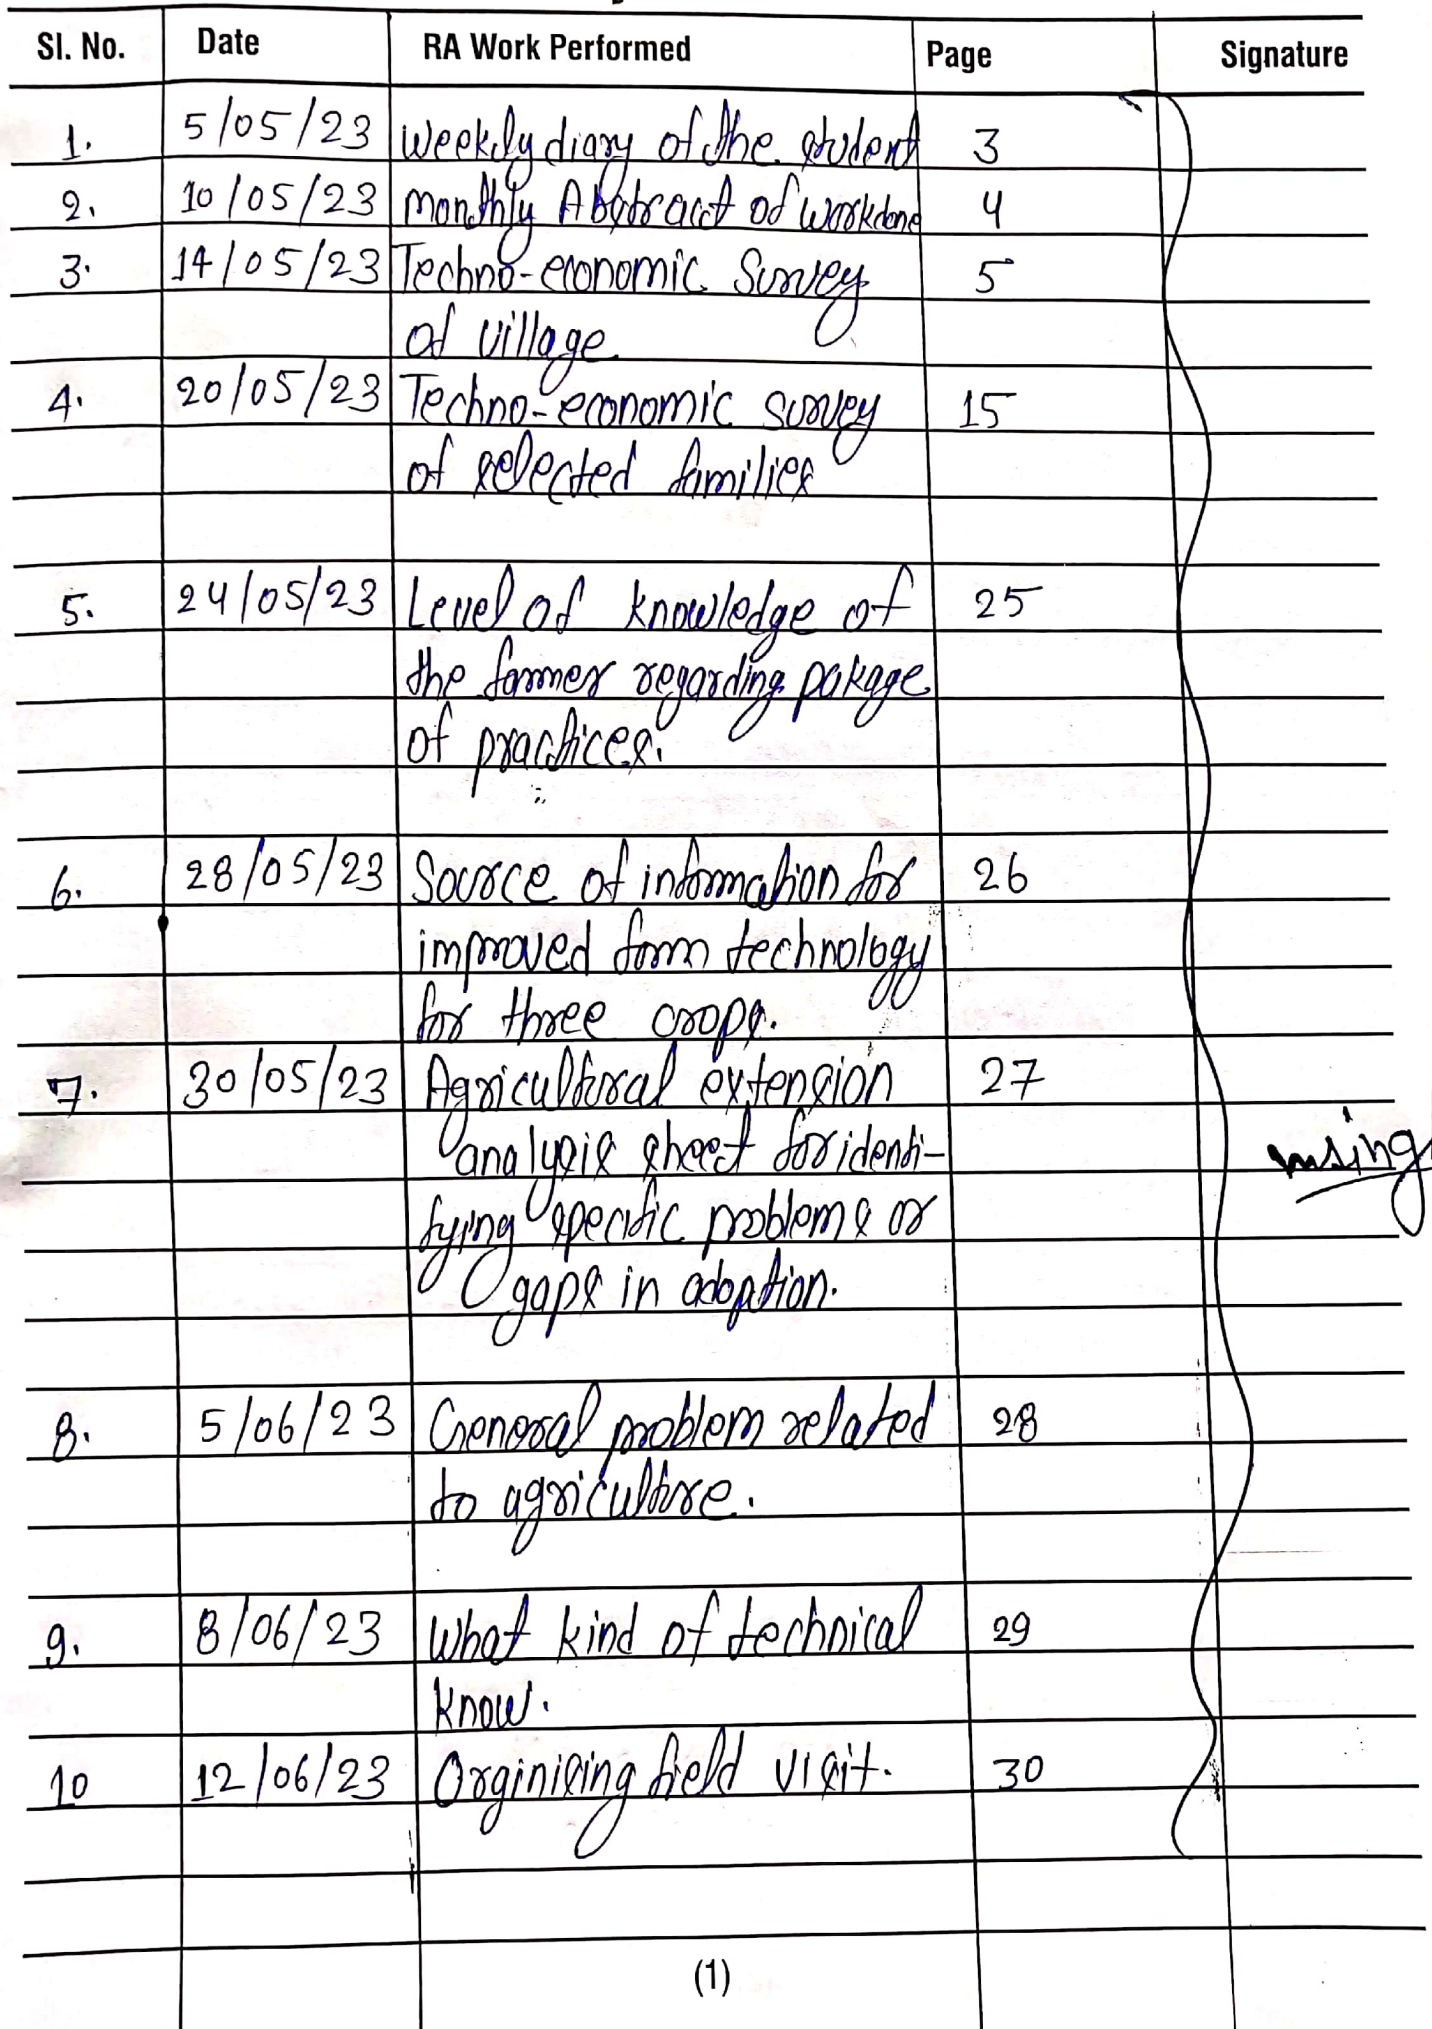 Sl. No. Date RA Work Performed Page Signature
1. 5/05/23 Weekly diary of the student 3
2. 10/05/23 monthly Abstract of workdone 4
3. 14/05/23 Techno-economic Survey 5
of village
4. 20/05/23 Techno-economic survey 15
of selected families
5. 24/05/23 Level of knowledge of 25
the farmer regarding pakage
of practices.
6. 28/05/23 Source of information for 26
improved farm technology
for three crops.
7. 30/05/23 Agricultural extension 27
analysis sheet for identi-
fying specific problems or
gaps in adoption.
8. 5/06/23 General problem related 28
to agriculture.
9. 8/06/23 What kind of technical 29
know.
10 12/06/23 Orginising field visit. 30
(1)